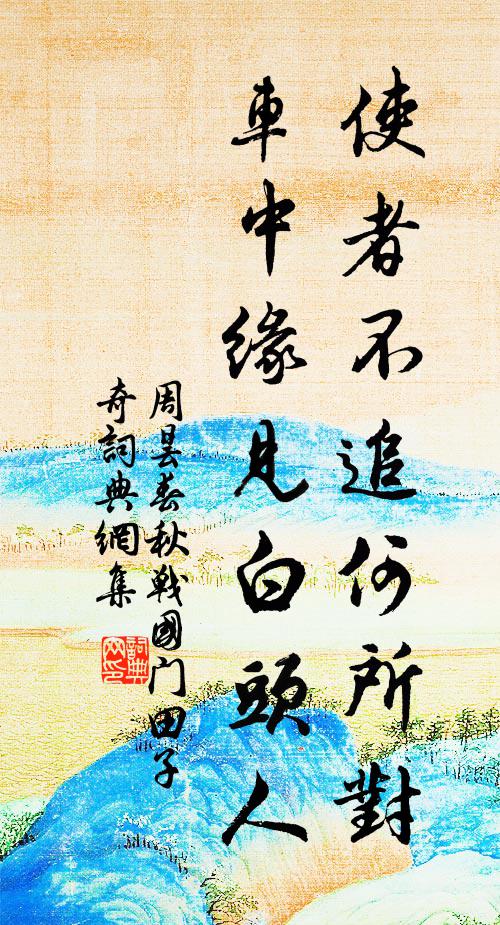 使者不追何所對
車中緣見白頭人
周曇春秋戰國門田子
奇詞典網集
詞典